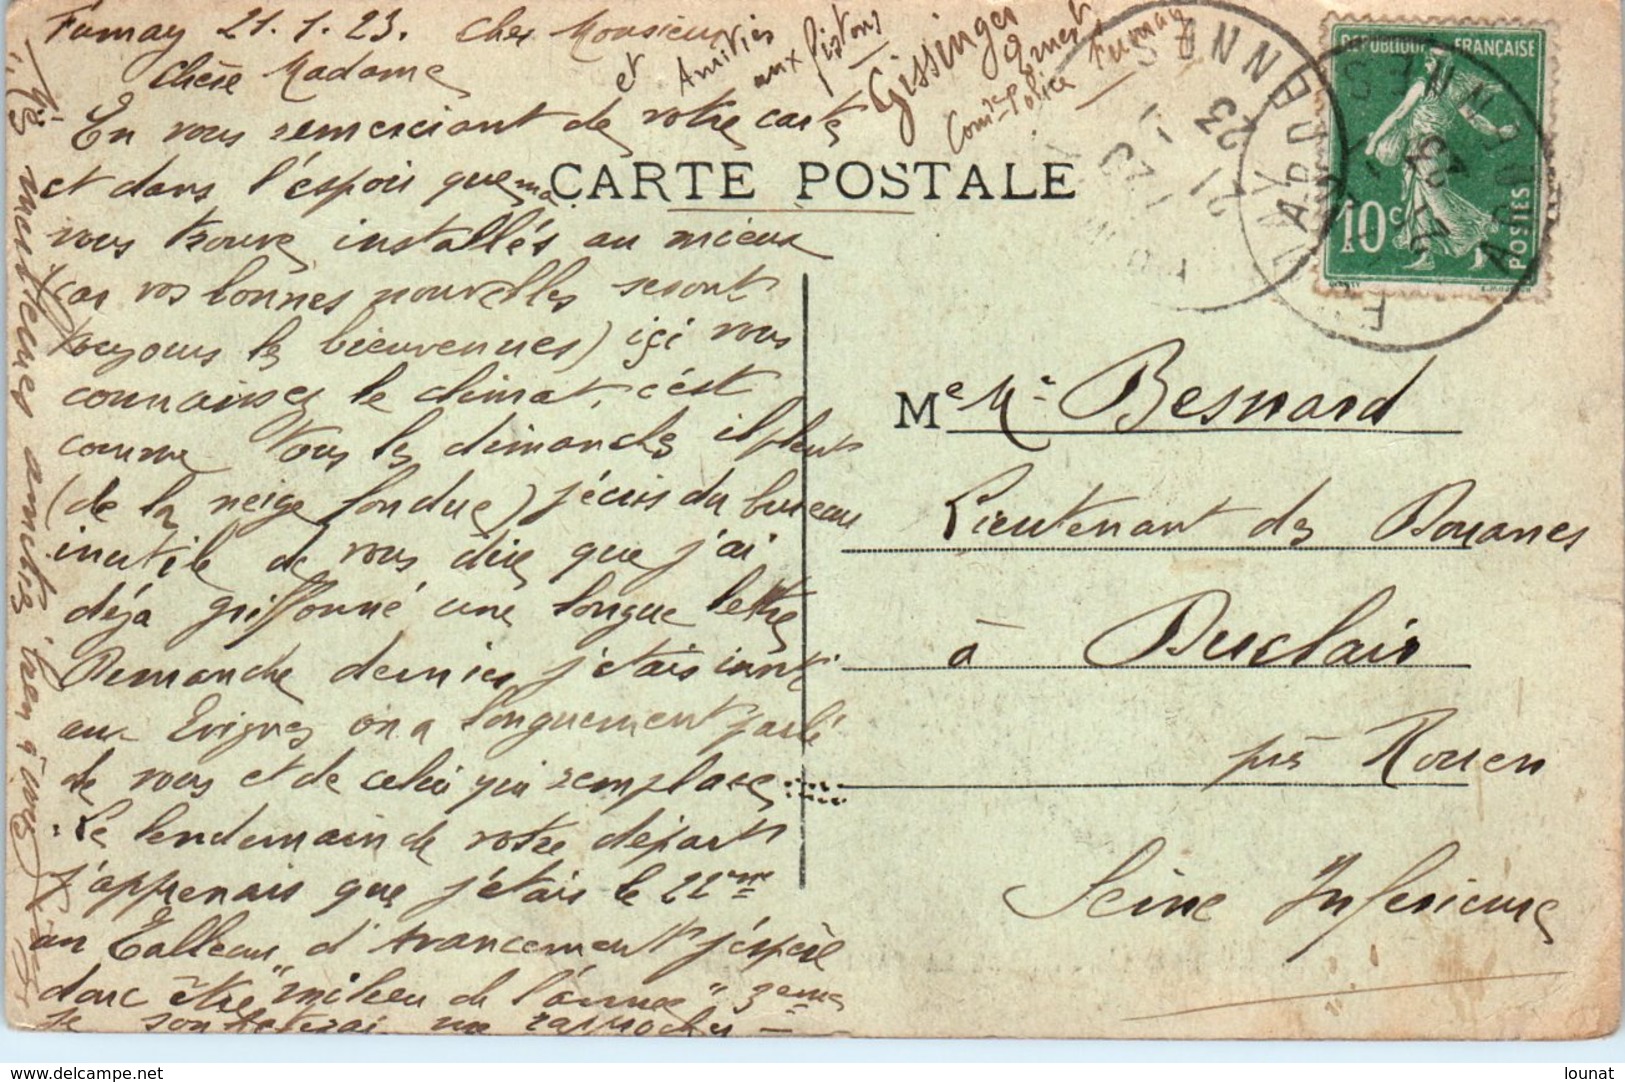 Fumay 21.1.23. Cher Monsieur
Chère Madame
et Amitiés
aux fistons
Gissinger
Ernest
Comre Police Fumay
En vous remerciant de votre carte
et dans l'espoir que ma
CARTE POSTALE
vous trouve installés au mieux
(car vos bonnes nouvelles seront
toujours les bienvenues) içi vous
connaissez le climat, c'est
comme tous les dimanches il pleut
(de la neige fondue) j'écris du bureau
inutile de vous dire que j'ai
déja griffonné une longue lettre
Dimanche dernier j'étais invité
aux Evignes on a longuement parlé
de vous et de celui qui remplace
Le lendemain de votre départ
j'apprenais que j'étais le 22eme
au Tableau d'Avancement j'espère
donc être "milieu de l'année" 3eme
je souhaiterai me rapprocher
Mes meilleures amitiés bien à vous
RÉPUBLIQUE FRANÇAISE
10c
POSTES
FUMAY
ARDENNES
21
23
FUMAY
ARDENNES
21
23
Me Mr Besnard
Lieutenant des Douanes
à Duclair
près Rouen
Seine Inferieure
https://www.delcampe.net
lounat